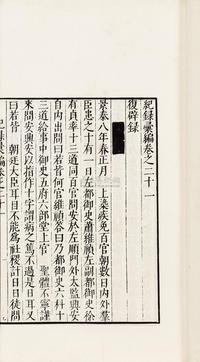 紀録彙編卷之二十一
復辟録
景泰八年春正月　上染疾免百官朝數日内外羣
臣患之十有一日左都御史蕭維禎左副都御史徐
有貞率十三道同百官問安於左順門外太監興安
自内出問曰若皆何官維禎答曰乃都御史六科十
三道給事中御史五府六部堂上官　聖體不寧謹
來問安興安以指作十字謂病之篤不過是日耳又
曰若皆　朝廷大臣耳目不能爲社稷計日日徒問